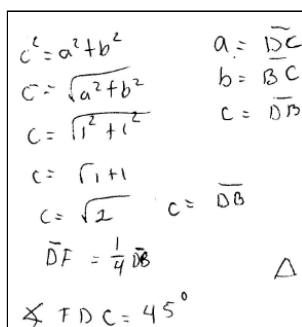 c² = a² + b²
c = √a² + b²
c = √1² + 1²
c = √1 + 1
c = √2
c = D̅B̅
D̅F̅ = 1/4 D̅B̅
∡ FDC = 45°
a = D̅C̅
b = B̅C̅
c = D̅B̅
△